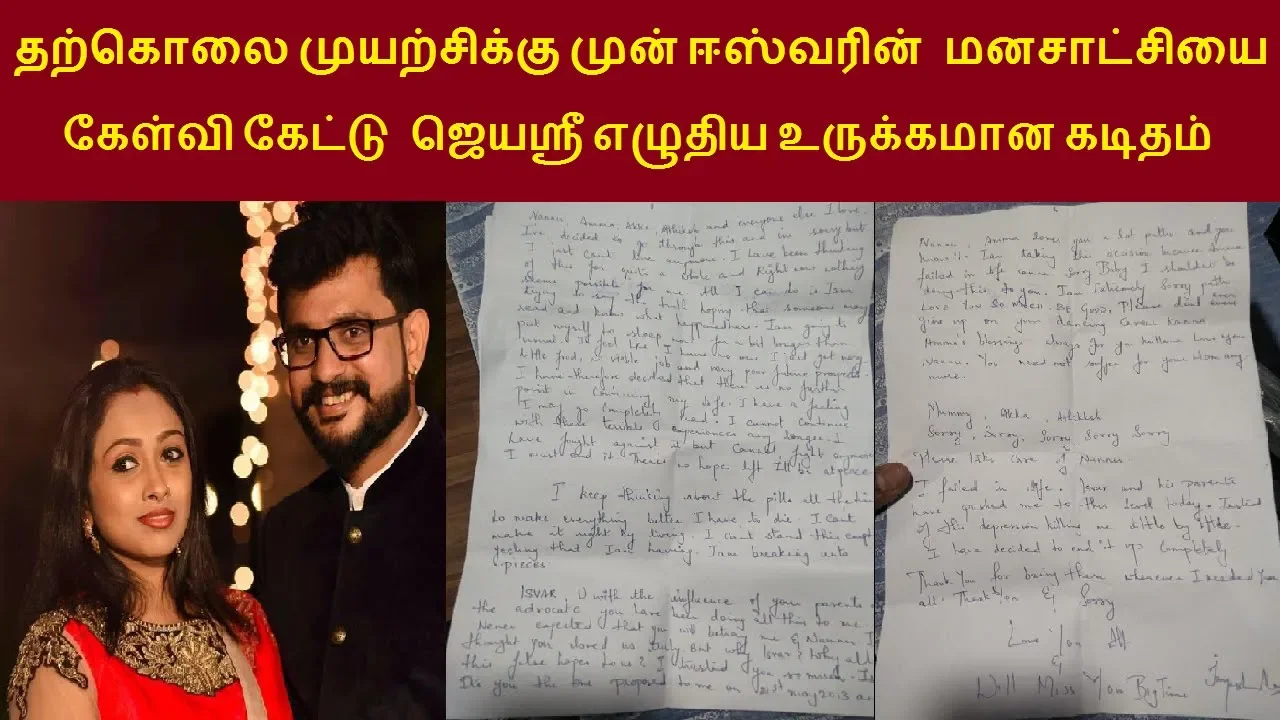 தற்கொலை முயற்சிக்கு முன் ஈஸ்வரின் மனசாட்சியை
கேள்வி கேட்டு ஜெயஸ்ரீ எழுதிய உருக்கமான கடிதம்
Amma, Akka, and everyone else I love.
I've decided to go through this and im sorry but
I just cant anymore. I have been thinking
of this for quite a while and Right now nothing
seems possible for me All I can do is Iam
trying to say the truth hoping that someone may
read and know what Iam going to
put myself to sleep for a bit longer than
usual. I feel like I have no one I just get very
little food, no job and very poor future
I have therefore decided that there is no further
point in continuing my life. I have a feeling
I may go completely mad. I cannot continue
with these terrible experiences any longer. I
have fought against it but cannot fight anymore
I must end it There's no hope left I'll be at peace
I keep thinking about the pills all the time
to make everything better I have to die. I cant
make it right by living. I cant stand this
feeling that Iam having. Iam breaking into
pieces
ISVAR, U with the influence of your parents &
the advocate you have been doing all this to me
Never expected that you will betray me & I
thought you loved us truly But why Isvar? Why all
this false hopes Love? I trusted you so much.
It's you the one proposed to me on 21st may 2013
Amma loves you a lot and you
know it. Iam taking this decision because amma
failed in life Sorry Baby I shouldn't be
doing this to you. Iam Extremely sorry
Love You So much. Be Good, Please dont
give up on your
Amma's blessings always for you
You need not suffer for your
more.
Mummy, Akka
Sorry, Sorry, Sorry Sorry Sorry
Please take care of
I failed in life. Isvar and his parents
have pushed me to this today. Instead
of this depression killing me little by little.
I have decided to end it up completely.
Thank You for being there whenever I needed you
all. Thank You & Sorry
Love You All
&
Will Miss You Big Time